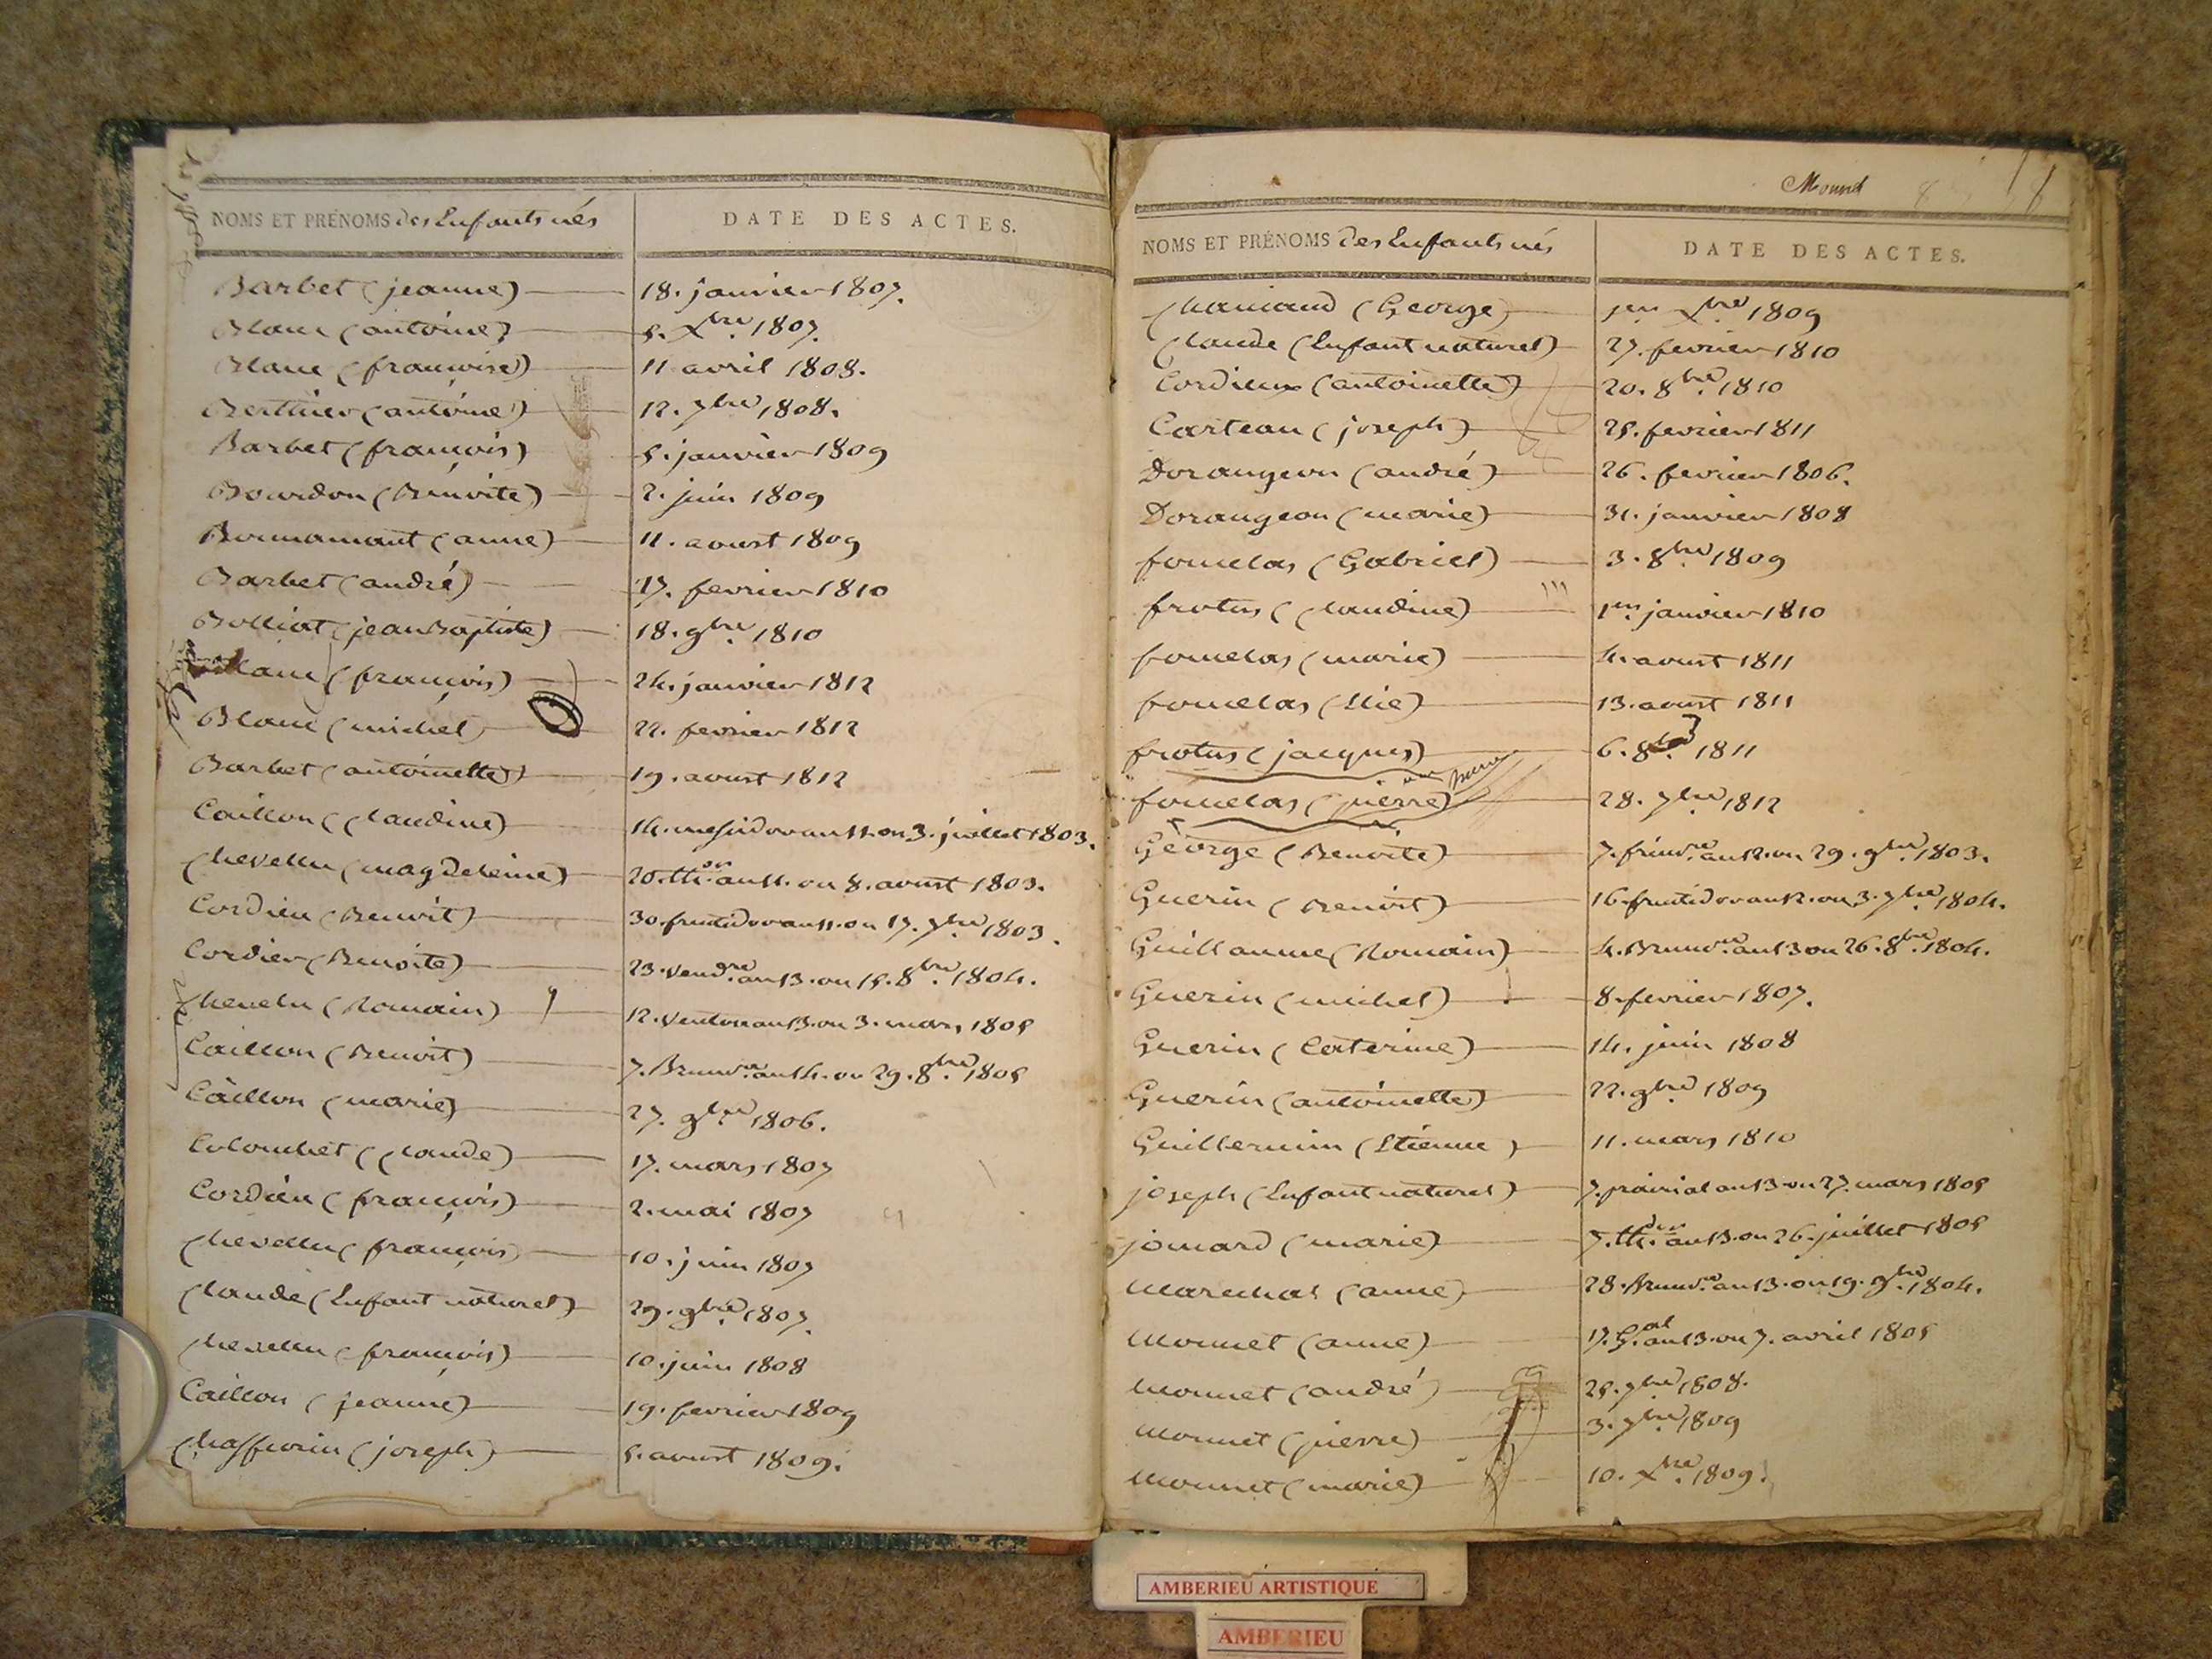 NOMS ET PRÉNOMS des Enfants nés
DATE DES ACTES.
Barbet (jeanne) 18. janvier 1807.
Blanc (antoine) 5. Xbre 1807.
Blanc (françoise) 11 avril 1808.
Berthier (antoine) 12. 7bre 1808.
Barbet (françois) 5. janvier 1809
Bourdon (Benoite) 2. juin 1809
Bonnamant (anne) 11. aoust 1809
Barbet (andré) 17. fevrier 1810
Bolliat (jean Baptiste) 18. 9bre 1810
Blanc (françois) 24. janvier 1812
Blanc (michel) 22. fevrier 1812
Barbet (antoinette) 19. aoust 1812
Caillon (Claudine) 14. messidor an 11. ou 3. juillet 1803.
Chevellu (magdeleine) 20. th.or an 11. ou 8. aoust 1803.
Cordieu (Benoit) 30. fructidor an 11. ou 17. 7bre 1803.
Cordier (Benoite) 23. vend.re an 13. ou 15. 8bre 1804.
Chevelu (Romain) 12. ventose an 13. ou 3. mars 1805
Caillon (Benoit) 7. Brum.re an 14. ou 29. 8bre 1805
Caillon (marie) 27. 9bre 1806.
Colombet (Claude) 17. mars 1807
Cordieu (françois) 2. mai 1807
Chevellu (françois) 10. juin 1807
Claude (Enfant naturel) 29. 9bre 1807.
Chevellu (françois) 10. juin 1808
Caillon (jeanne) 19. fevrier 1809
Chaffurin (joseph) 5. aoust 1809.
NOMS ET PRÉNOMS des Enfants nés
DATE DES ACTES.
(George) 1er Xbre 1809
Claude (Enfant naturel) 27. fevrier 1810
Cordieux (antoinette) 20. 8bre 1810
Carteau (joseph) 25. fevrier 1811
Dorangeon (andré) 26. fevrier 1806.
Dorangeon (marie) 31. janvier 1808
fornelas (Gabriel) 3. 8bre 1809
frotus (Claudine) 1er janvier 1810
fornelas (marie) 4. aoust 1811
fornelas (Elie) 13. aoust 1811
frotus (jacques) 6. 8bre 1811
fornelas (pierre) 28. 7bre 1812
George (Benoite) 7. frim.re an 12. ou 29. 9bre 1803.
Guerin (Benoit) 16. fructidor an 12. ou 3. 7bre 1804.
Guillaume (Romain) 4. Brum.re an 13 ou 26. 8bre 1804.
Guerin (michel) 8. fevrier 1807.
Guerin (Caterine) 14. juin 1808
Guerin (antoinette) 22. 9bre 1809
Guillermin (Etienne) 11. mars 1810
joseph (Enfant naturel) 7. prairial an 13. ou 27. mars 1805
jomard (marie) 7. th.dor an 13. ou 26. juillet 1805
Marechal (anne) 28. Brum.re an 13. ou 19. 9bre 1804.
Monnet (anne) 17. G.al an 13. ou 7. avril 1805
Monnet (andré) 25. 7bre 1808.
Monnet (pierre) 3. 7bre 1809
Monnet (marie) 10. Xbre 1809.
AMBERIEU ARTISTIQUE
AMBERIEU